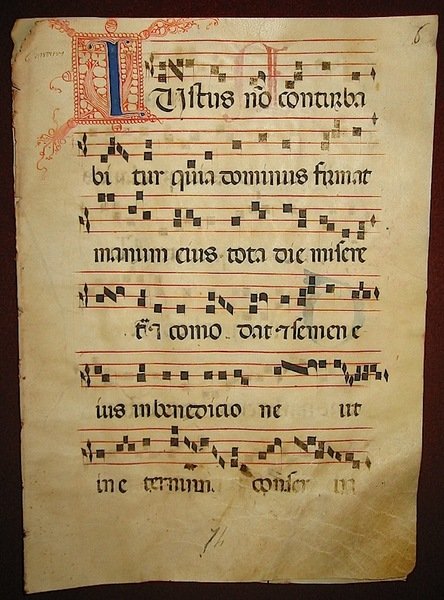 6
IUstus nō conturba
bi tur quia dominus firmat
manum eius tota die misere
t̄r ⁊ como dat ⁊ semen e
ius in benedicio ne ut
in e ternum conser
74